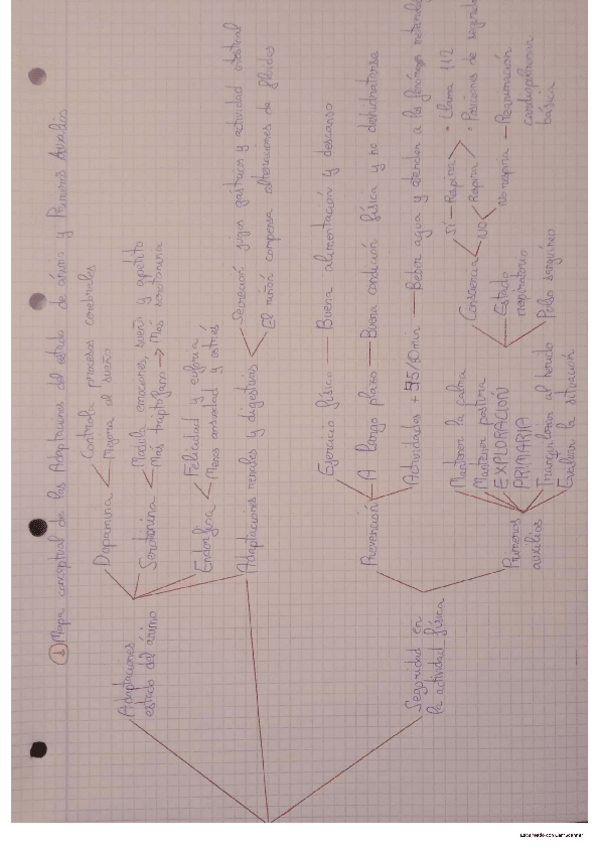 ① Mapa conceptual de las Adaptaciones del estado de ánimo y Primeros Auxilios
Adaptaciones
estado del ánimo
Dopamina
Controla procesos cerebrales
Mejora el sueño
Serotonina
Modula emociones, sueño y apetito
Más triptofano → Más serotonina
Endorfina
Felicidad y euforia
Menos ansiedad y estrés
Adaptaciones renales y digestivas
Secreción jugos gástricos y actividad intestinal
El riñón compensa alteraciones de fluidos
Seguridad en
la actividad física
Prevención
Ejercicio físico — Buena alimentación y descanso
A largo plazo — Buena condición física y no deshidratarse
Actividades + 45/50min — Beber agua y atender a los
Primeros
auxilios
Mantener la calma
Mantener postura
EXPLORACIÓN
PRIMARIA
Tranquilizar al herido
Evaluar la situación
Consciencia
Sí — Respira
• Llama 112
NO
Respira
• Posiciones de
No respira — Reanimación
cardiopulmonar
básica
Estado
respiratorio
Pulso sanguíneo